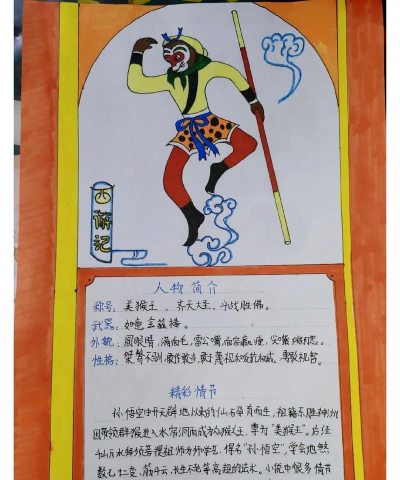 西游记
人物简介
称号：美猴王、齐天大圣、斗战胜佛。
武器：如意金箍棒。
外貌：凤眼睛，满面毛，雷公嘴，面容羸瘦，尖嘴缩腮。
性格：桀骜不驯，敢作敢当，敢于蔑视权威，
精彩情节
孙悟空由开天辟地以来的仙石孕育而生，祖籍东胜神州
因带领群猴进入水帘洞而成为众猴之王，尊为"美猴王"。
千山万水拜须菩提祖师为师学艺，得名"孙悟空"，学会地煞
数七十二变，筋斗云，长生不老等高超的法术。小说中很多情节